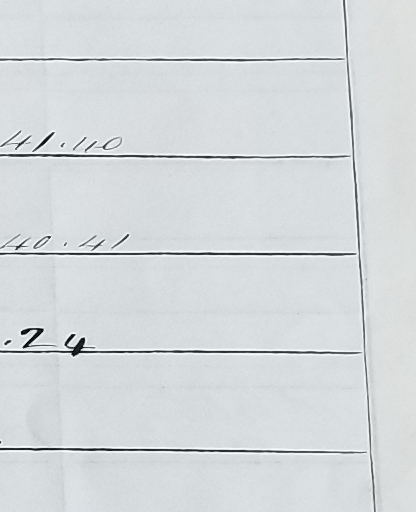 41.40
40.41
.24